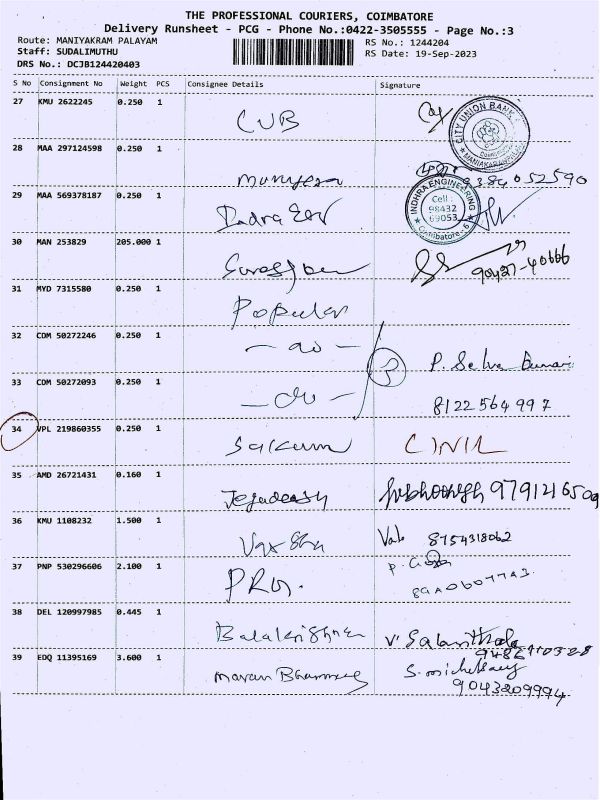 THE PROFESSIONAL COURIERS, COIMBATORE
Delivery Runsheet - PCG - Phone No.:0422-3505555 - Page No.:3
Route: MANIYAKRAM PALAYAM RS No.: 1244204
Staff: SUDALIMUTHU RS Date: 19-Sep-2023
DRS No.: DCJB124420403
S No Consignment No Weight PCS Consignee Details Signature
27 KMU 2622245 0.250 1 CUB CITY UNION BANK
28 MAA 297124598 0.250 1 9384052590
29 MAA 569378187 0.250 1 INDHRA ENGINEERING Cell : 98432 69053 Coimbatore - 6
30 MAN 253829 205.000 1 90427-40666
31 MYD 7315580 0.250 1 Popular
32 COM 50272246 0.250 1 - do - P. Selva Kumari
33 COM 50272093 0.250 1 - do - 8122564997
34 VPL 219860355 0.250 1
35 AMD 26721431 0.160 1 Jegadeesh
36 KMU 1108232 1.500 1 8754318062
37 PNP 530296606 2.100 1
38 DEL 120997985 0.445 1 Balakrishnan
39 EDQ 11395169 3.600 1 9043209994